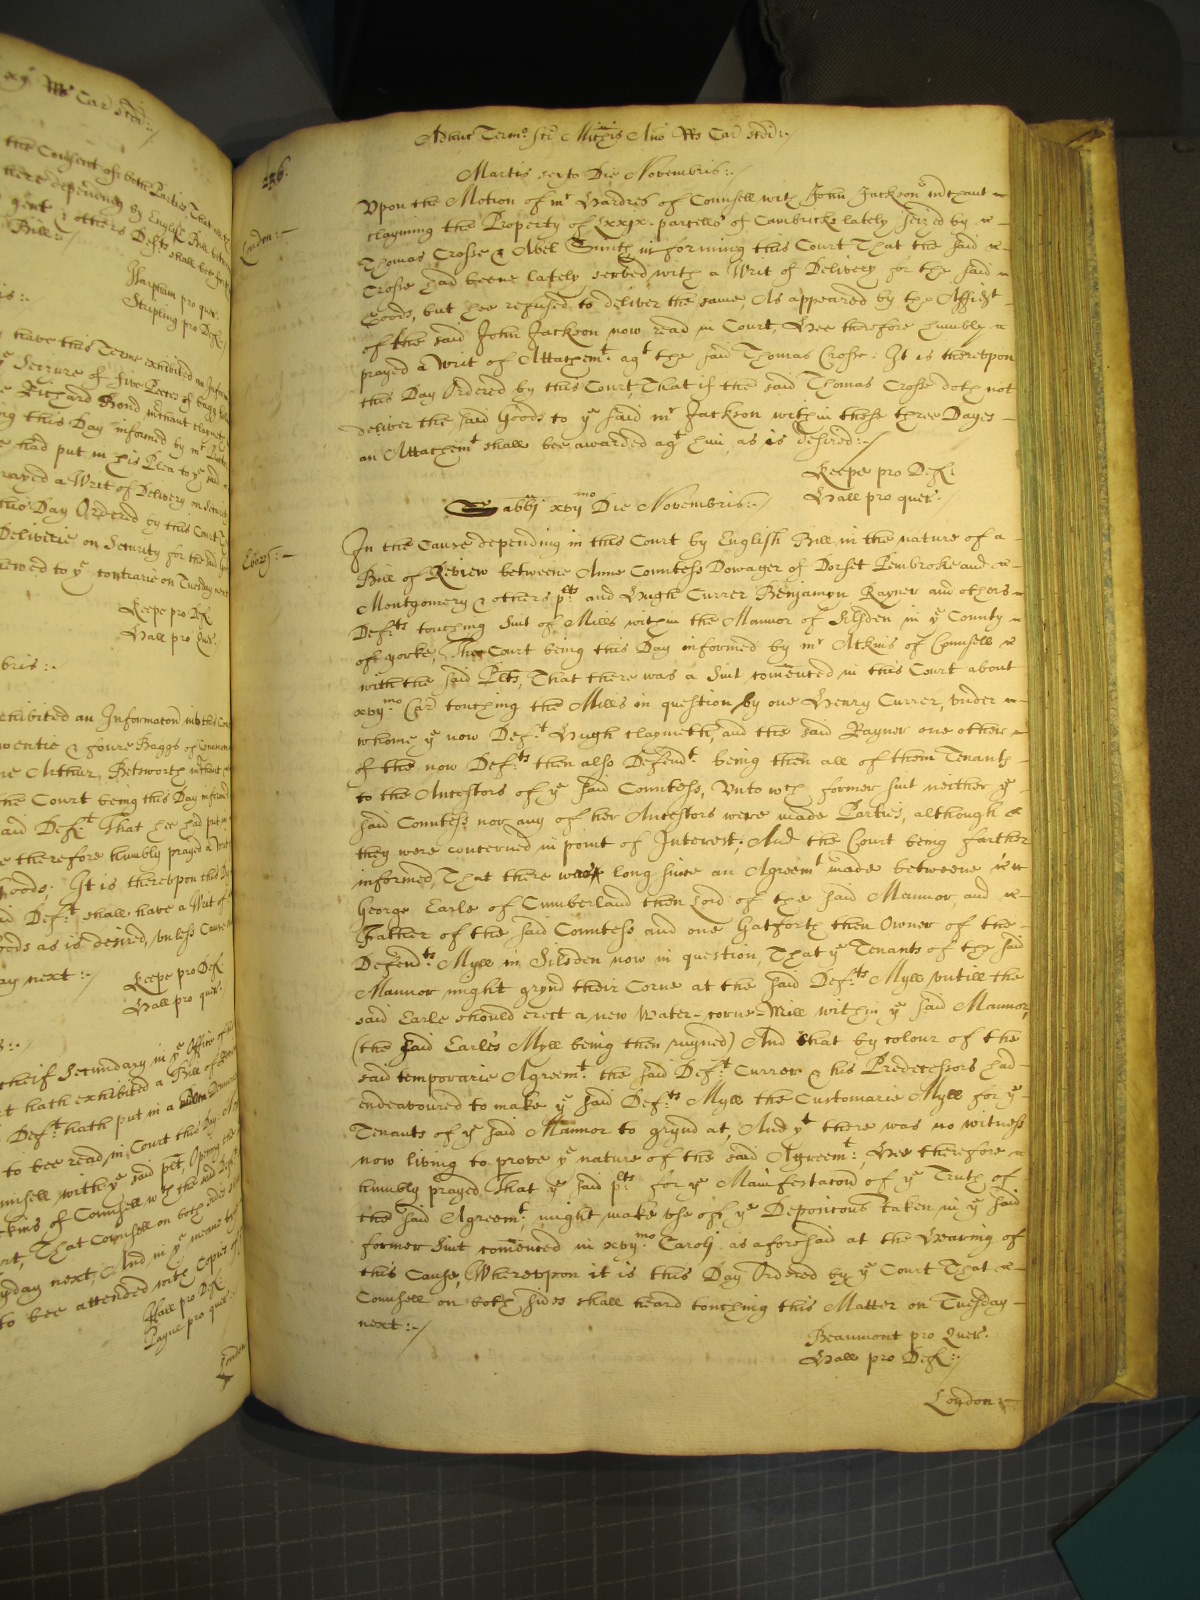 xxo Rs Car sc̄di:/
the Consent of both the Parties That
here dependeing By English Bill betwe
gent & others Defts shall bee
Bill:/
Harpham pro quer:
Stripling pro Def:/
have this Terme exhibited an Inform
Seizure of five Peeces of
Richard Bond m̄chant claymeth
ing this Day informed by mr
had put in his Plea to ye said
prayed a Writ of Delivery on Security
this Day Ordered by this Court
Deliverie on Security for the said
shewed to ye contrarie on Tuesday next
Keepe pro Def
Hall pro Quer:
bris:.
exhibited an Informacōn into this Court
twentie & foure Baggs of
one Arthur Betsworth m̄chant
the Court being this Day informed
said Deft That hee had put in
e therefore humbly prayed a Writ
Goods; It is therevpon this Day
said Deft shall have a Writ of
Goods as is desired, vnless Cause
ay next:/
Keepe pro Def
Hall pro quer:
theif Secundary in ye Office of
rt hath exhibited a Bill of
Deft hath put in a
to bee read in Court this Day
unsell with ye said plt, Opening the
tkins of Counsell wth the said Deft
ort, That Counsell on both sides
sday next, And in ye meane tyme
to bee attended with Copies of
Hall pro Def:
Payne pro quer:
London
Adhuc Termō Scī Mich̄is Año Rs Car sc̄di:/
236.
Martis sexto Die Novembris:/
London:
Vpon the Motion of mr Hardres of Counsell with John Jackson m̄chant
clayming the Property of Lxxix. parcells of Cambricke lately seized by
Thomas Crosse & Abel Smith, informing this Court That the said
Crosse had beene lately served with a Writ of Delivery for the said
Goods, but hee refused to deliver the same, As appeared by the Affidt
of the said John Jackson now read in Court, Hee therefore humbly
prayed a Writ of Attachemt. agt the said Thomas Crosse: It is therevpon
this Day Ordered by this Court, That if the said Thomas Crosse doth not
deliver the said Goods to ye said mr Jackson within these three Dayes
an Attachemt shall bee awarded agt him, as is desired:/
Keepe pro Def:
Hall pro quer:
Sabbi xvijmo Die Novembris:/
Ebor:
In the Cause depending in this Court by English Bill in the nature of a
Bill of Review betweene Anne Countess Dowager of Dorset Pembroke and
Montgomery & others plts and Hugh Currer Benjamyn Rayner and others
Defts touching Suit of Mills within the Mannor of Silsden in ye County
of Yorke, The Court being this Day informed by mr Atkins of Counsell
with the said Plts, That there was a Suit com̄enced in this Court about
xvijmo Car̄ touching the Mills in question by one Henry Currer, vnder
whome ye now Deft Hugh claymeth, and the said Rayner one other
of the now Defts then also Defendt. being then all of them Tenants
to the Ancestors of ye said Countess, Vnto wch former suit neither ye
said Countess nor any of her Ancestors were made Parties, although
they were concerned in point of Interest; And the Court being farther
informed, That there was long since an Agreemt made betweene
George Earle of Cumberland then Lord of the said Mannor, and
Father of the said Countess and one Hatforth then Owner of the
Defendts Myll in Silsden now in question, That ye Tenants of the said
Mannor might grynd their Corne at the said Defts Myll vntill the
said Earle should erect a new Water-corne-Mill within ye said Mannor,
(the said Earles Myll being then ruyned) And that by colour of the
said temporarie Agreemt. the said Deft Currer & his Predecessors had
endeavoured to make ye said Defts Myll the Customarie Myll for ye
Tenants of ye said Mannor to grynd at, And yt there was no witness
now living to prove ye nature of the said Agreemt; Hee therefore
humbly prayed That ye said plts for ye Manifestacōn of ye Truth of
the said Agreemt, might make vse of ye Deposicōns taken in ye said
former Suit com̄enced in xvijmo Caroli as aforesaid at the Hearing of
this Cause, Wherevpon it is this Day Ordered by ye Court That
Counsell on both sides shall heard touching this Matter on Tuesday
next:/
Beaumont pro Quer:
Hall pro Def:/
London